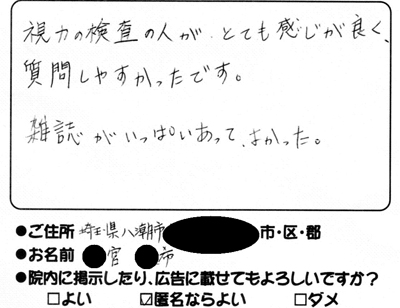 視力の検査の人が、とても感じが良く、
質問しやすかったです。
雑誌がいっぱいあって、よかった。
●ご住所 埼玉県八潮市 市・区・郡
●お名前 宮 市
●院内に掲示したり、広告に載せてもよろしいですか?
□よい ☑匿名ならよい □ダメ